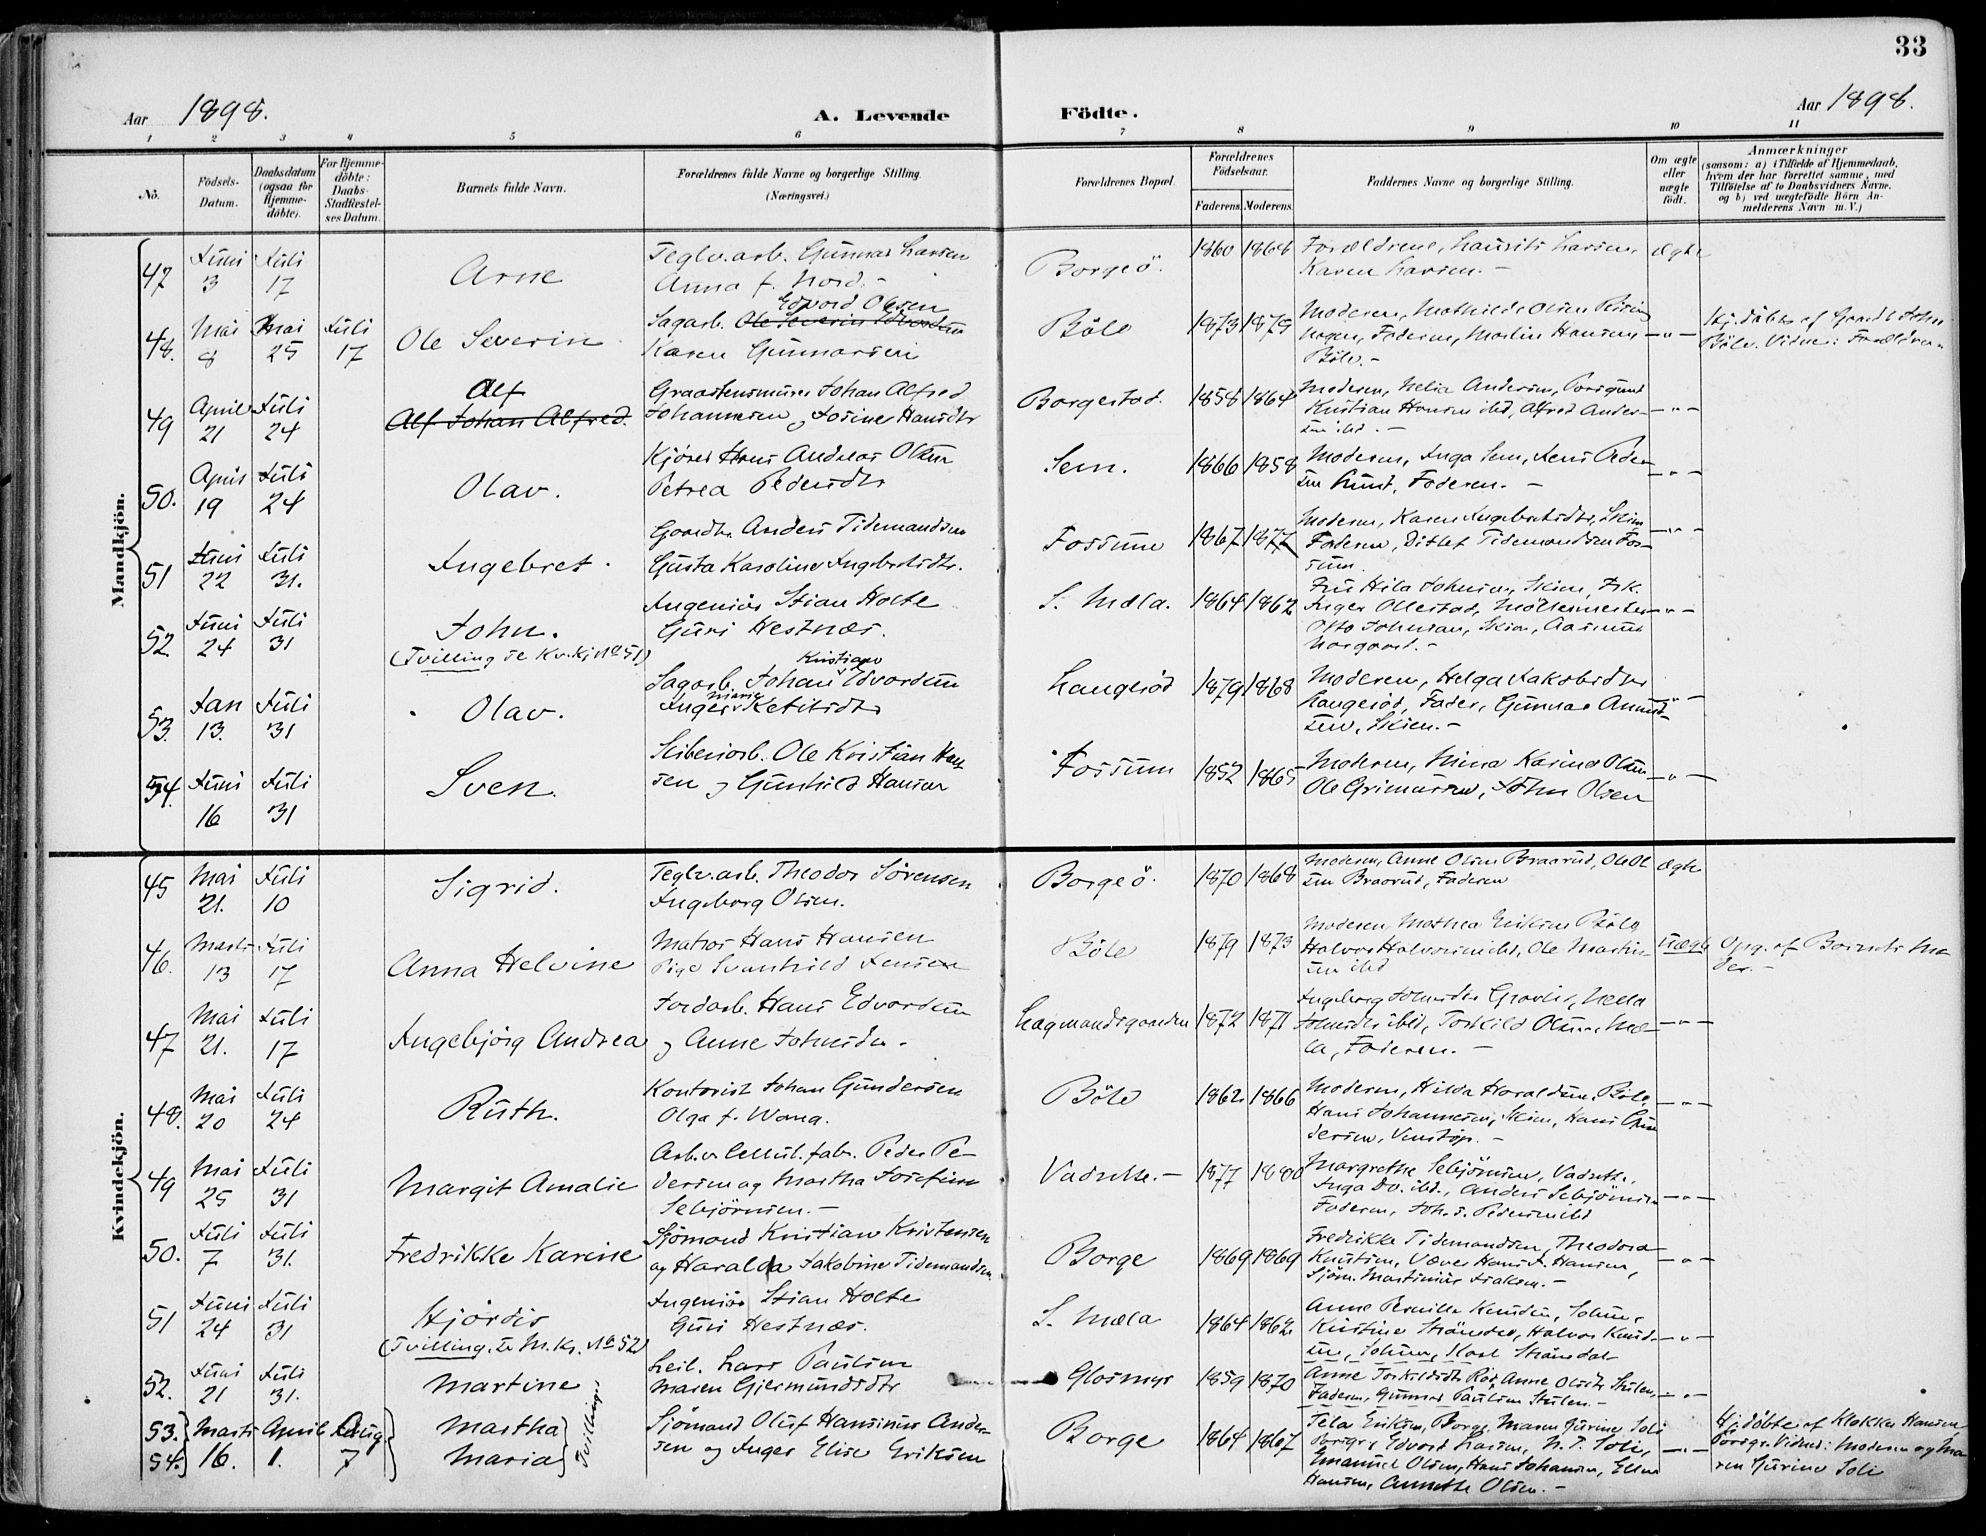 33
Aar 1898.
A. Levende Födte.
Aar 1898.
1 2 3 4 5 6 7 8 9 10 11
No.
Födsels-Datum.
Daabsdatum (ogsaa for Hjemme-döbte).
For Hjemme-döbte: Daabs-Stadfæstel-ses Datum.
Barnets fulde Navn.
Forældrenes fulde Navne og borgerlige Stilling. (Næringsvei.)
Forældrenes Bopæl.
Forældrenes Födselsaar.
Faderens. Moderens.
Faddernes Navne og borgerlige Stilling.
Om ægte eller uægte födt.
Anmærkninger
(saasom: a) i Tilfælde af Hjemmedaab, hvem der har forrettet samme, med Tilföielse af to Daabsvidners Navne, og b) ved uægtefödte Börn An-melderens Navn m. V.)
Mandkjön.
47 Juni 3 Juli 17 Arne
Teglv.arb. Gunnar Larsen
Anna f. Nord. -
Borgeö. 1860 1868
Forældrene, Laurits Larsen,
Karen Larsen. -
Ægte
48. Mai 8 Mai 25 Juli 17 Ole Severin
Edvard Olsen
Sagarb. Ole Severin Edvardsen
Karen Gunnarsen
Böle 1873 1875
Moderen, Mathilde Olsen Rising
hogen, Faderen, Martin Hansen,
Böle. -
- " -
Hj.döbt af Gaardb. John
Böle. Vidner: Forældrene
49 April 21 Juli 24
Alf
Alf Johan Alfred.
Graastensmurer Johan Alfred
Johannesen og Josine Hansdtr
Borgestad. 1858 1864
Moderen, Nelia Andersen, Porsgrund
Kristian Hansen ibd, Alfred Ander-
sen ibd. -
- " -
50. April 19 Juli 24 Olav.
Kjörer Hans Andreas Olsen
Petrea Pedersdtr
Sem. 1866 1858
Moderen, Inga Sem, Jens Peder-
sen Aunt, Faderen. -
- " -
51 Juni 22 Juli 31. Ingebret.
Gaardbr. Anders Tidemandsen
Gusta Karoline Ingebretsdtr.
Fossum 1867 1877
Moderen, Karen Ingebretsdtr, Skien
Faderen, Ditlef Tidemandsen Fos-
sum.
- " -
52. Juni 24 Juli 31 John.
(Tvilling se Kv.kj No 51)
Ingeniör Stian Holte
Guri Hestnæs.
S. Mæla. 1864 1862
Fru Hila Johnsen, Skien, Frk.
Inger Ollestad, Möllermester
Otto Johnsen, Skien, Aasmund
Norgaard. -
- " -
53. Jan 13. Juli 31 Olav.
Kristian
Sagarb. Johan Edvardsen
Marie
Inger Ketilsdtr
Langeröd 1879 1868
Moderen, Helga Jakobsdtr
Langeröd, Fader, Gunnar Amund-
sen, Skien. -
- " -
54. Juni 16 Juli 31 Sven.
Sliberiarb. Ole Kristian Han-
sen og Gunhild Hansen
Fossum 1852 1865
Moderen, Mina Karine Olsen
Ole Grimursen, John Olsen
- " -
Kvindekjön.
45 Mai 21. Juli 10 Sigrid.
Teglv.arb. Theodor Sörensen
Ingeborg Olsen.
Borgeö. 1870 1868
Moderen, Anne Olsen Braarud, Ole Ol
sen Braarud, Faderen
Ægte
46. Marts 13 Juli 17 Anna Helvine
Matros Hans Hansen
Pige Svanhild Jensen
Böle 1879 1873
Moderen Mathea Eriksen Böle
Halvor Halvorsen ibd, Ole Martin-
sen ibd
Uægte
Opg. af Barnets Mo
der. -
47 Mai 21. Juli 17 Ingebjörg Andrea
Jordarb. Hans Edvardsen
og Anne Johnsdtr. -
Lagmandsgaarden 1872 1871
Ingeborg Johnsdtr Gravli, Nella
Johnsdtr ibd, Torkild Olsen, Mæ-
la, Faderen. -
- " -
48. Mai 20 Juli 24 Ruth.
Kontorist Johan Gundersen
Olga f. Wang.
Böle 1862 1866
Moderen, Hilda Haraldsen, Böle,
Hans Johannesen, Skien, Hans Gun
dersen, Venstöp. -
- " -
49 Mai 25 Juli 31 Margit Amalie
Arb. v Cellul. fabr. Peder Pe-
dersen og Martha Josefine
Sebjörnsen. -
Vadrette. - 1877 1880
Margrethe Sebjörnsen, Vadrette.
Inga Do. ibd., Anders Sebjörnsen
Faderen, Joh. s. Pedersen ibd
- " -
50. Juli 7 Juli 31. Fredrikke Karine
Sjömand Kristian Kristensen
og Haralda Jakobine Tidemandsen
Borge 1869 1869
Fredrikke Tidemandsen, Theodora
Knutsen, Væver Hans J. Hansen,
Sjöm. Martinius Isaksen. -
- " -
51 Juni 24 Juli 31 Hjördis
(Tvilling, se M.Kj. No 52)
Ingeniör Stian Holte
Guri Hestnæs.
S. Mæla 1864 1862
Anne Pernille Knudsen, Solum,
Kristine Strömdal, Halvor Knud-
sen, Solum, Karl Strömdal
- " -
52. Juni 21 Juli 31. Martine
Leil. Lars Paulsen
Maren Gjermundsdtr
Glosmyr 1859 1870
Anne Torkildsdtr Röd, Anne Olsdtr Stulen,
Faderen, Gunnar Paulsen Stulen. -
- " -
53. 54. Marts 16. April 1. Aug. 7
Martha
Maria
Tvillinger
Sjömand Oluf Hansinus Ander-
sen og Inger Elise Eriksen
Borge 1864 1867
Tela Eriksen, Borge, Maren Gurine Soli
Porsgr. Edvard Larsen, N. P. Soli,
Emanuel Olsen, Hans Johansen, Ellen
Hansen, Annette Olsen. -
- " -
Hj.döbte af Klokker Hansen
Porsgr. Vidner: Moderen og Ma
ren Gurine Soli